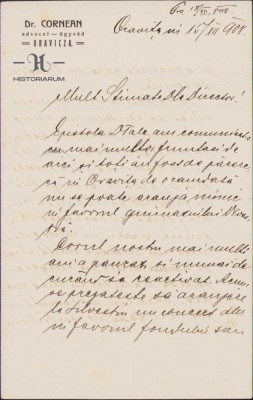 Dr. CORNEAN
advocat — ügyvéd
ORAVICZA.
HISTORIARUM
Oravița in 15/III 908.
Mult Stimate Dle Director!
Epistola Dtale am comunicat-o
cu mai multor fruntași de
aici și toți au fost de părere
că in Oravița de o cam dată
nu se poate aranja nimic
in favorul
Corul nostru mai mulți
ani a pauzat, si numai de
curând s'a reactivat. Acum
se pregateste să aranjeze
la un concert
in favorul fondului